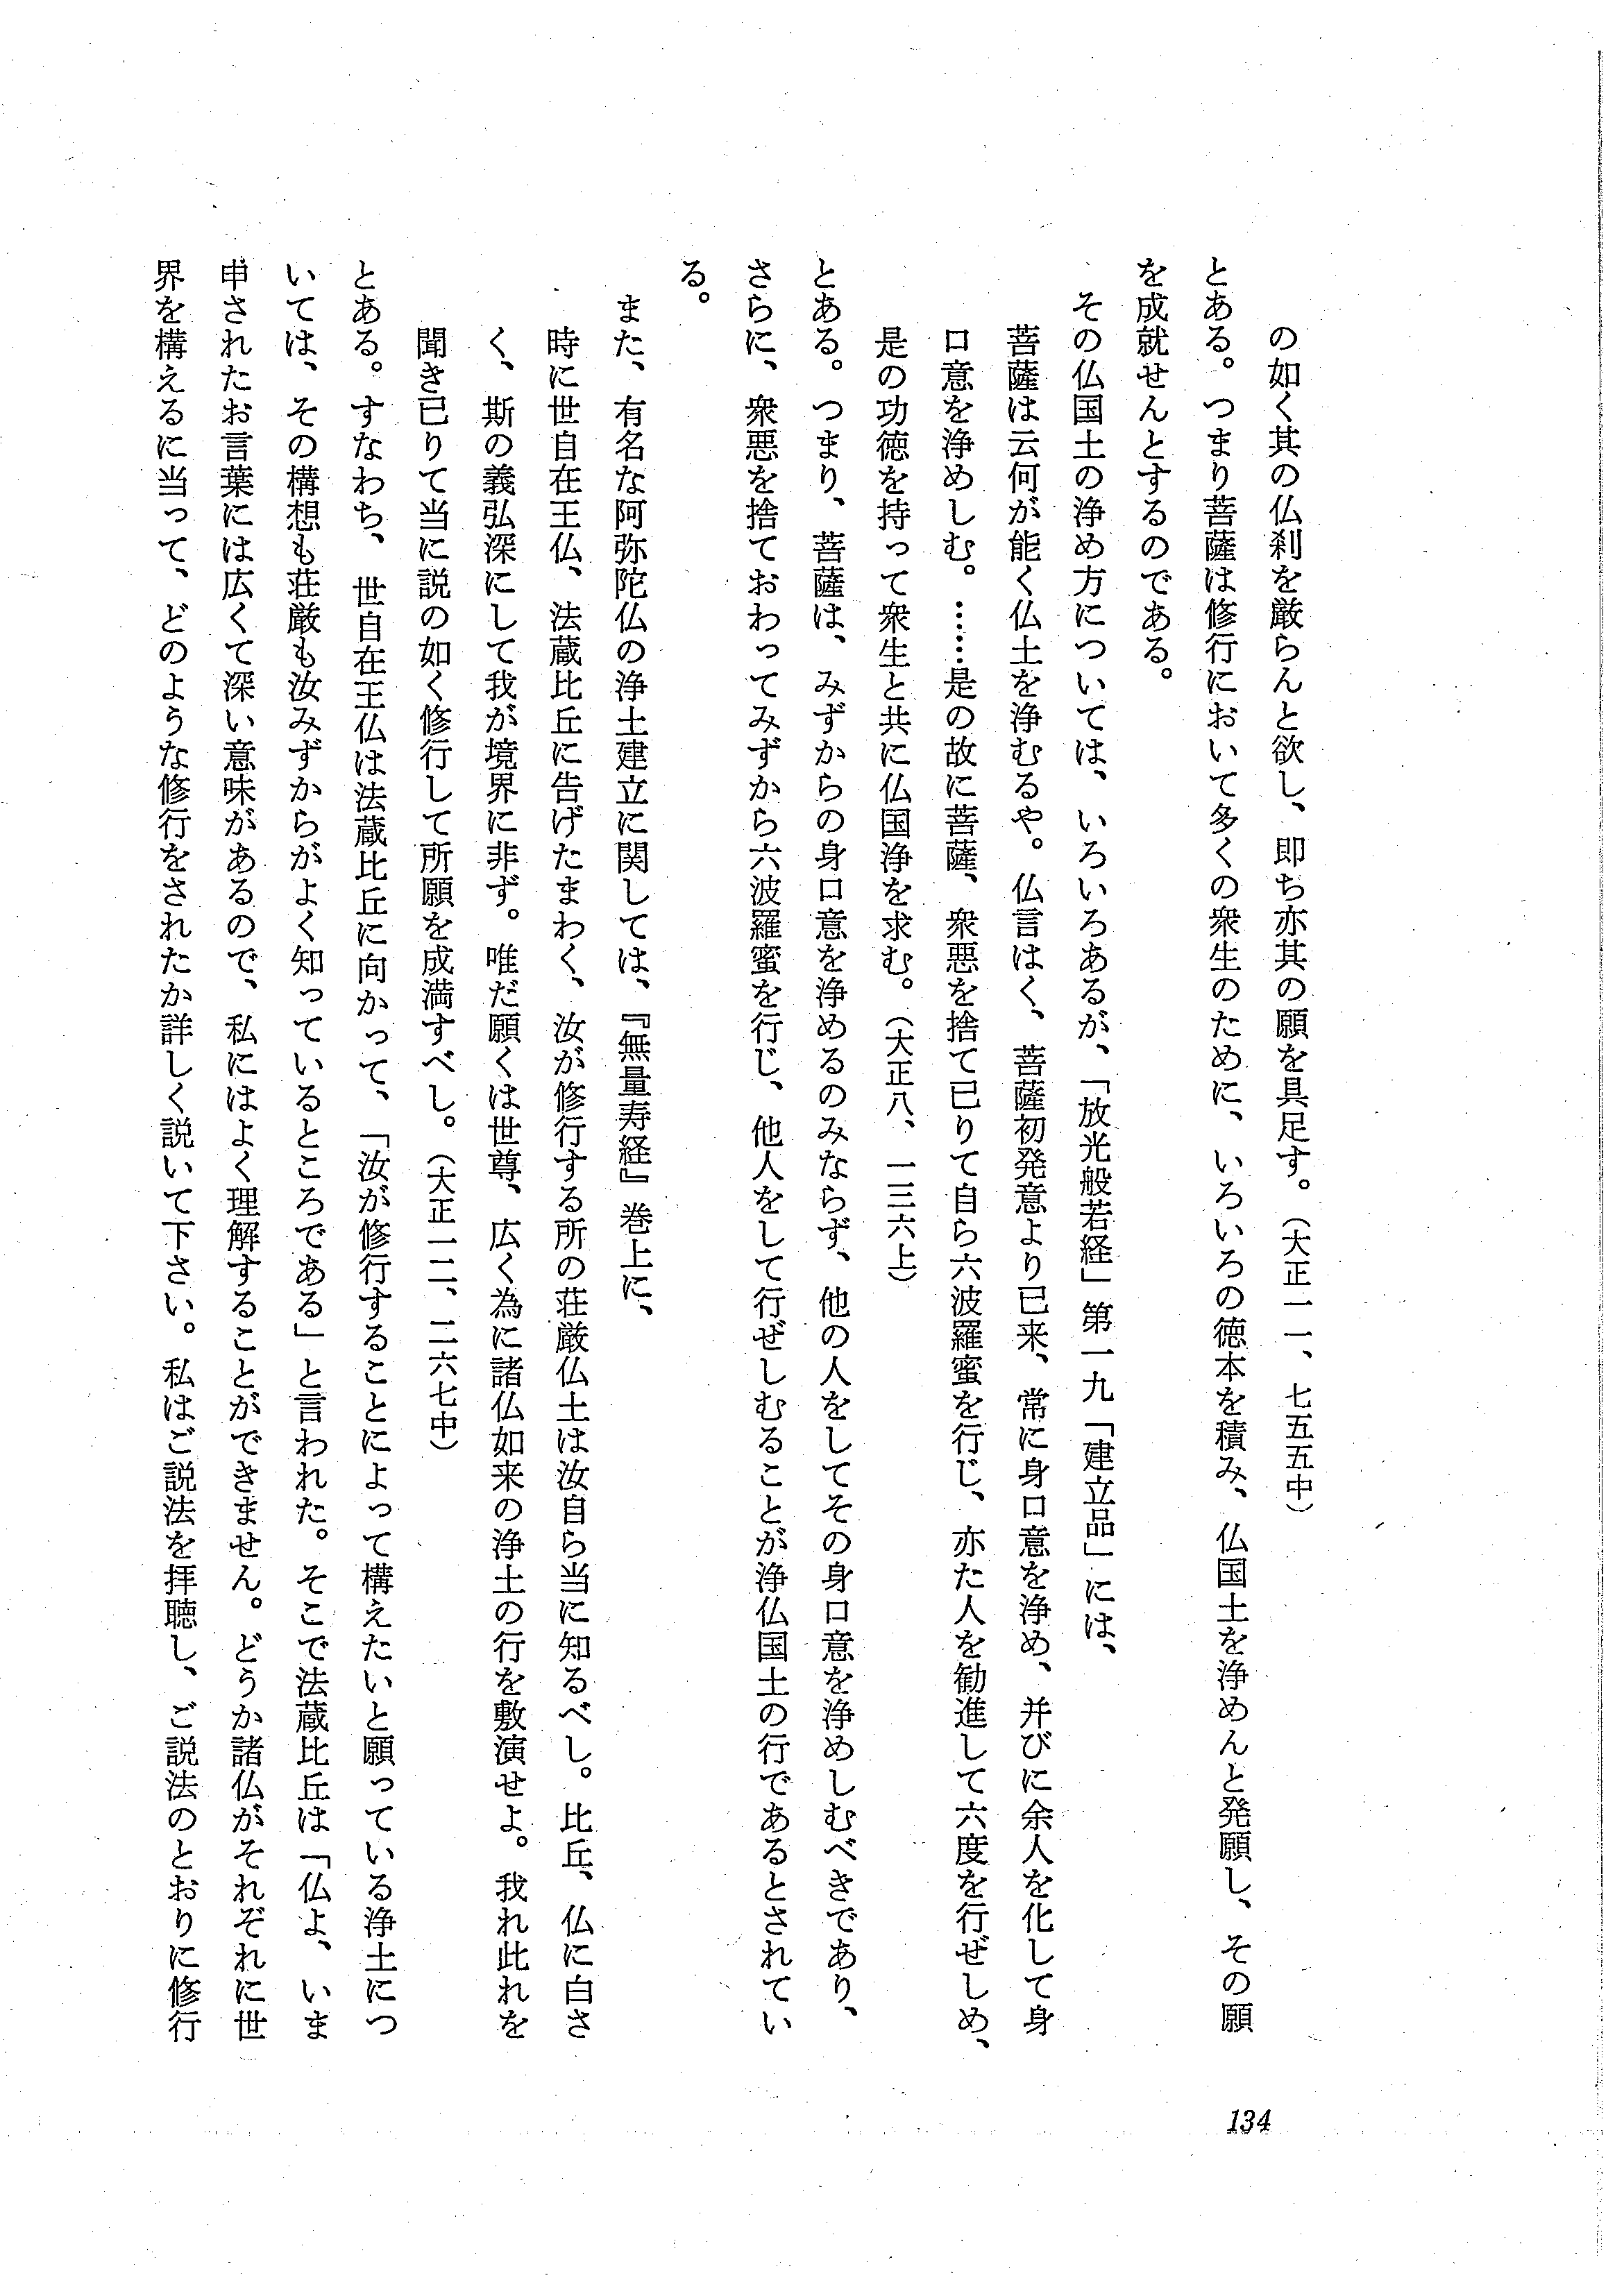 の如く其の仏刹を厳らんと欲し、即ち亦其の願を具足す。（大正一一、七五五中）
とある。つまり菩薩は修行において多くの衆生のために、いろいろの徳本を積み、仏国土を浄めんと発願し、その願
を成就せんとするのである。
その仏国土の浄め方については、いろいろあるが、「放光般若経」第一九「建立品」には、
菩薩は云何が能く仏土を浄むるや。仏言はく、菩薩初発意より已来、常に身口意を浄め、并びに余人を化して身
口意を浄めしむ。……是の故に菩薩、衆悪を捨て已りて自ら六波羅蜜を行じ、亦た人を勧進して六度を行ぜしめ、
是の功徳を持って衆生と共に仏国浄を求む。（大正八、一三六上）
とある。つまり、菩薩は、みずからの身口意を浄めるのみならず、他の人をしてその身口意を浄めしむべきであり、
さらに、衆悪を捨ておわってみずから六波羅蜜を行じ、他人をして行ぜしむることが浄仏国土の行であるとされてい
る。
また、有名な阿弥陀仏の浄土建立に関しては、『無量寿経』巻上に、
時に世自在王仏、法蔵比丘に告げたまわく、汝が修行する所の荘厳仏土は汝自ら当に知るべし。比丘、仏に白さ
く、斯の義弘深にして我が境界に非ず。唯だ願くは世尊、広く為に諸仏如来の浄土の行を敷演せよ。我れ此れを
聞き已りて当に説の如く修行して所願を成満すべし。（大正一二、二六七中）
とある。すなわち、世自在王仏は法蔵比丘に向かって、「汝が修行することによって構えたいと願っている浄土につ
いては、その構想も荘厳も汝みずからがよく知っているところである」と言われた。そこで法蔵比丘は「仏よ、いま
申されたお言葉には広くて深い意味があるので、私にはよく理解することができません。どうか諸仏がそれぞれに世
界を構えるに当って、どのような修行をされたか詳しく説いて下さい。私はご説法を拝聴し、ご説法のとおりに修行
134